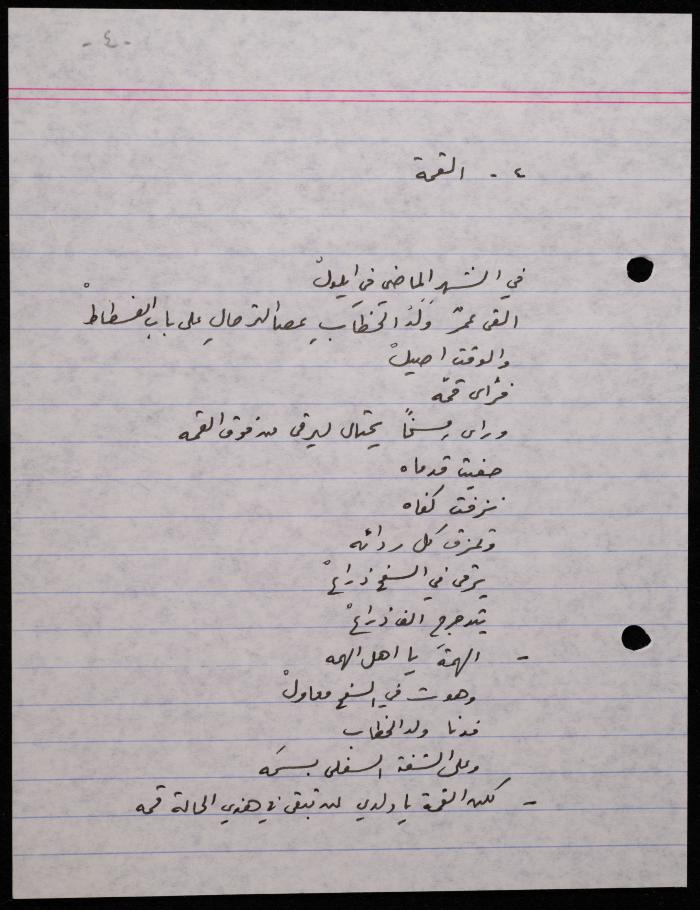 - ٤ -
٤ - القمة
في الشهرِ الماضي في ايلولْ
القى عمرٌ وَلَدُ الخطابِ عصا الترحالِ على بابِ الفسطاطْ
والوقت اصيلْ
فرأى قمّه
ورأى مسخاً يحتال ليرقى من فوق القمه
حفيت قدماه
نزفت كفاه
وتمزق كل ردائه
يرقى في السفح ذراعْ
يتدحرج الف ذراعْ
- الهمةَ يا اهل الهمه
وهوت في السفح معاولْ
فدنا ولد الخطاب
وعلى الشفة السفلى بسمَه
- لكن القمة يا ولدي لن تبقى في هذي الحالة قمه